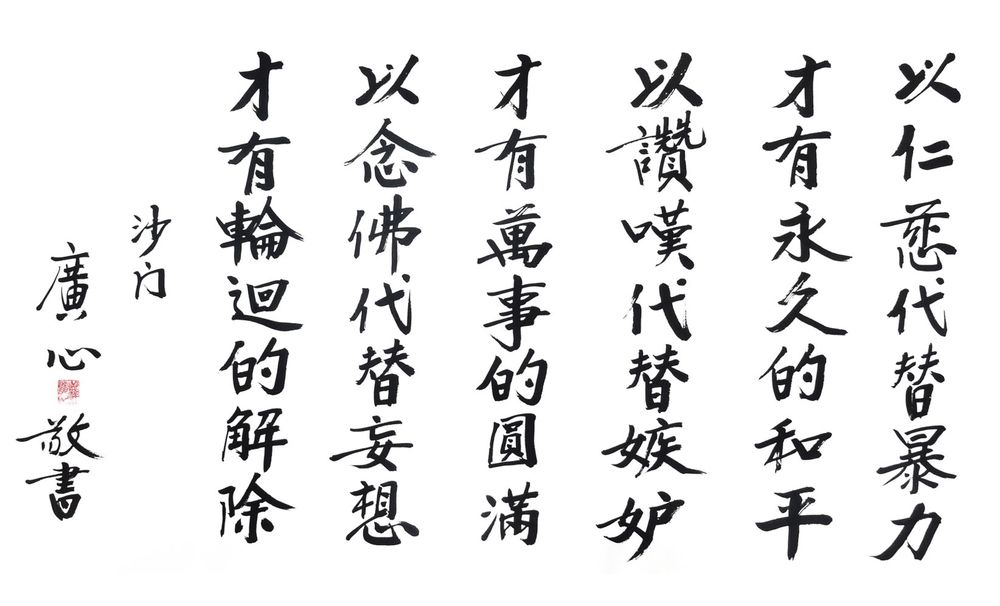 以仁慈代替暴力
才有永久的和平
以讚嘆代替嫉妒
才有萬事的圓滿
以念佛代替妄想
才有輪迴的解除
沙门
廣心敬書